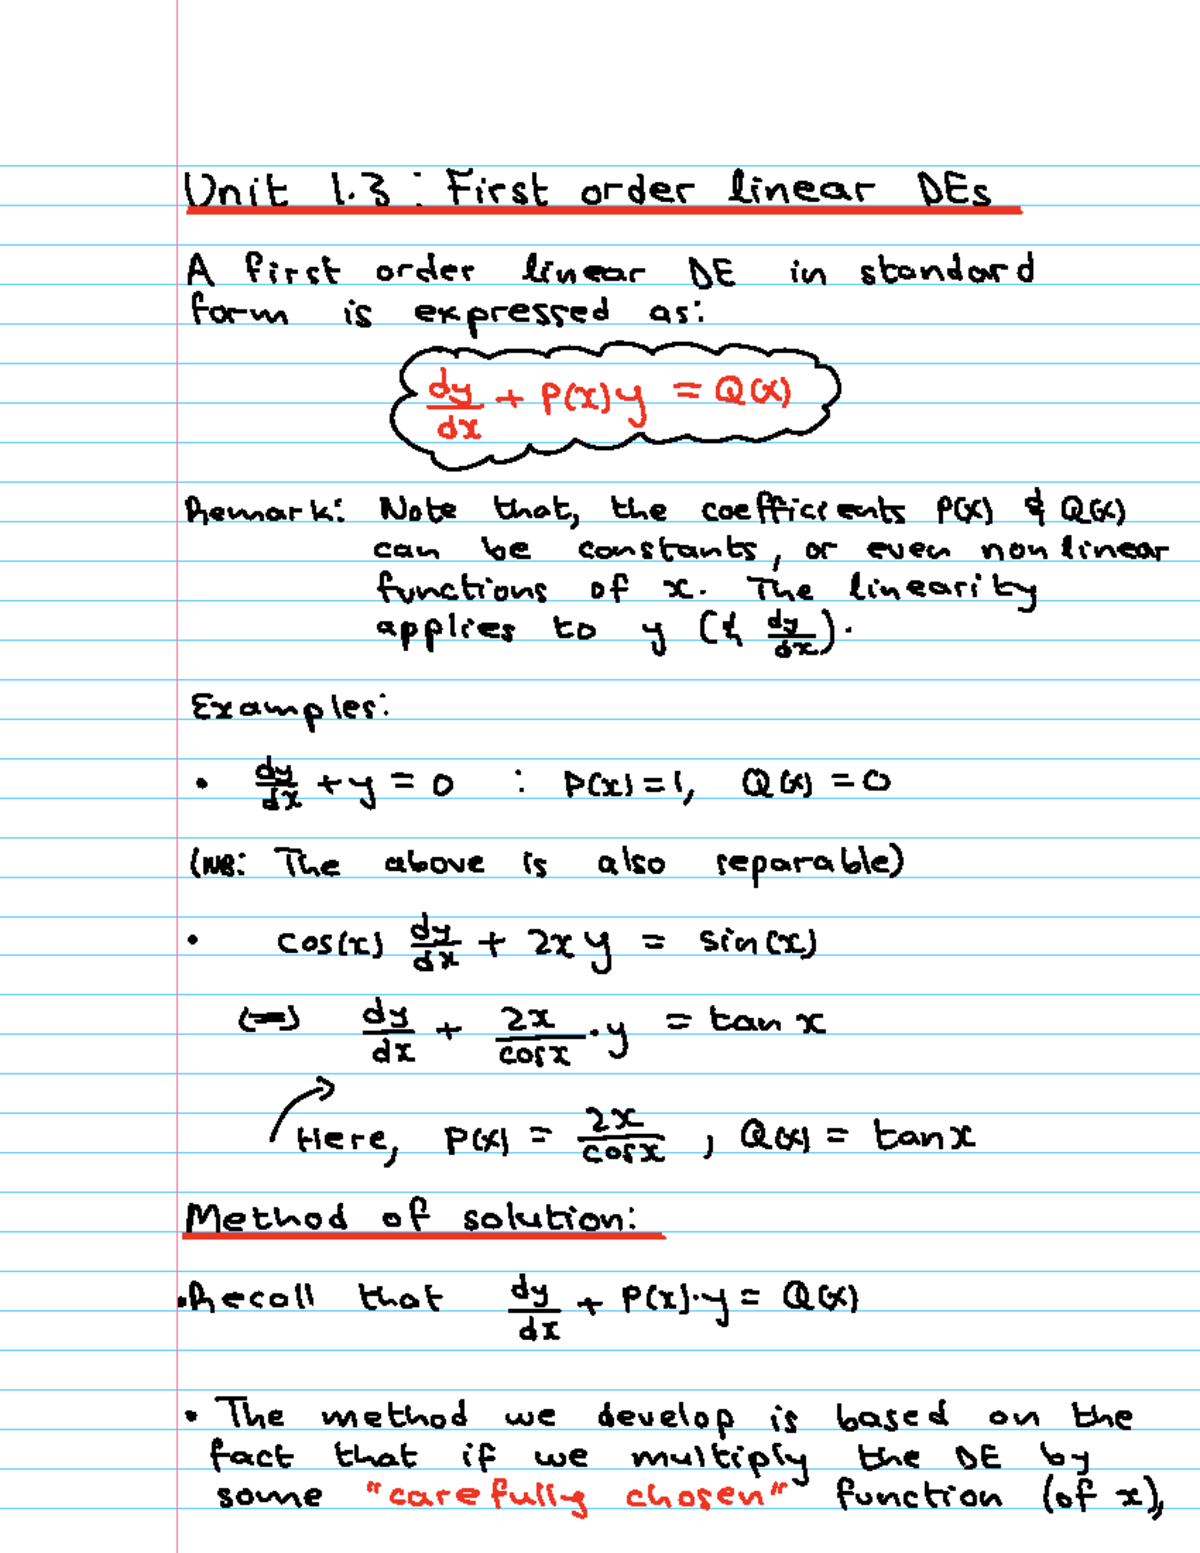 Unit 1.3 : First order linear DEs
A first order linear DE in standard
form is expressed as:
dy/dx + P(x)y = Q(x)
Remark: Note that, the coefficients P(x) & Q(x)
can be constants, or even nonlinear
functions of x. The linearity
applies to y (& dy/dx).
Examples:
• dy/dx + y = 0 : P(x) = 1, Q(x) = 0
(NB: The above is also separable)
• cos(x) dy/dx + 2xy = sin(x)
(=) dy/dx + 2x/cosx · y = tan x
Here, P(x) = 2x/cosx , Q(x) = tanx
Method of solution:
• Recall that dy/dx + P(x)·y = Q(x)
• The method we develop is based on the
fact that if we multiply the DE by
some "carefully chosen" function (of x),